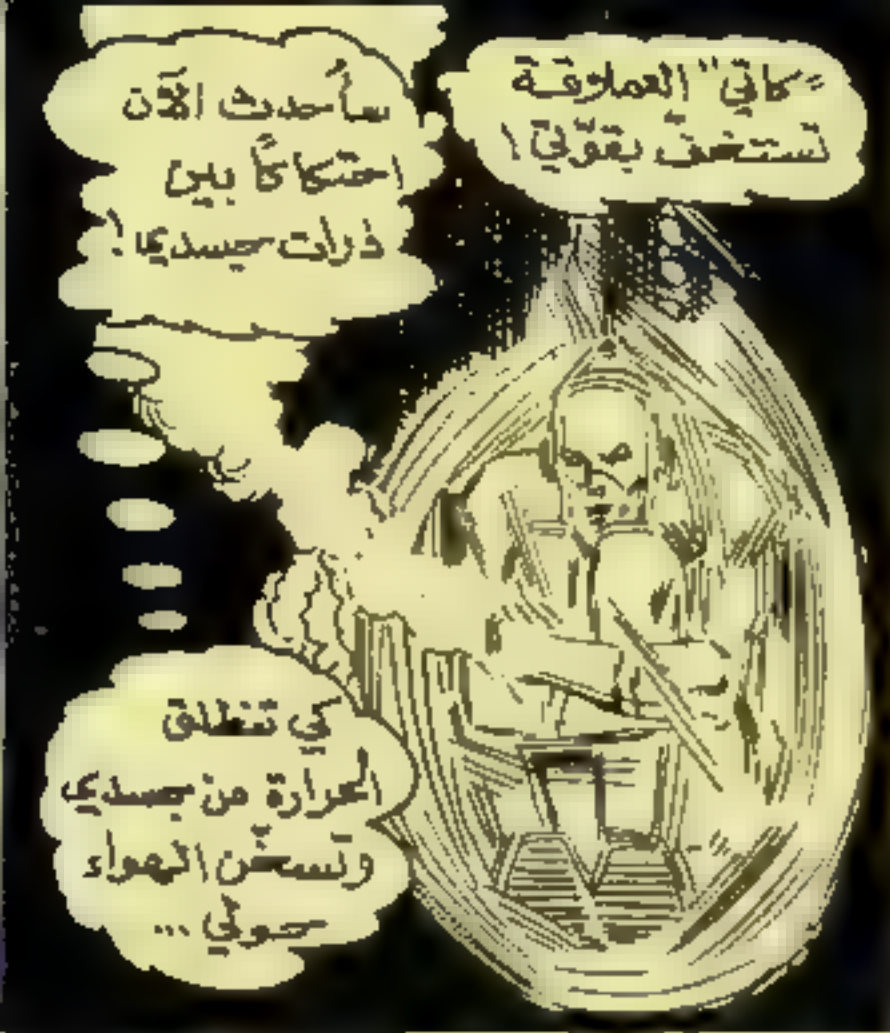 "كاتي" العملاقة
تستخفّ بقوّتي!
سأحدث الآن
احتكاكًا بين
ذرات جسدي!
كي تنطلق
الحرارة من جسدي
وتسخّن الهواء
حولي ...